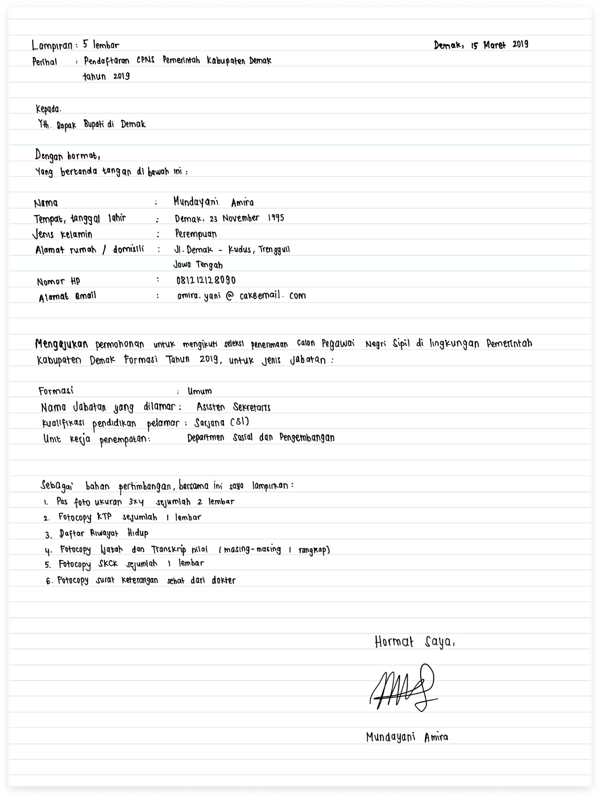 Lampiran : 5 lembar
Demak, 15 Maret 2019
Perihal : Pendaftaran CPNS Pemerintah Kabupaten Demak
tahun 2019
Kepada.
Yth. Bapak Bupati di Demak
Dengan hormat,
Yang bertanda tangan di bawah ini :
Nama : Mundayani Amira
Tempat, tanggal lahir : Demak, 23 November 1995
Jenis kelamin : Perempuan
Alamat rumah / domisili : Jl. Demak - Kudus, Trengguli
Jawa Tengah
Nomor HP : 081212128090
Alamat email : amira.yani @ cakeemail.com
Mengajukan permohonan untuk mengikuti seleksi penerimaan Calon Pegawai Negri Sipil di lingkungan Pemerintah
Kabupaten Demak Formasi Tahun 2019, untuk jenis Jabatan :
Formasi : Umum
Nama Jabatan yang dilamar : Asisten Sekretaris
Kualifikasi pendidikan pelamar : Sarjana (S1)
Unit kerja penempatan: Departmen Sosial dan Pengembangan
Sebagai bahan pertimbangan, bersama ini saya lampirkan :
1. Pas foto ukuran 3x4 sejumlah 2 lembar
2. Fotocopy KTP sejumlah 1 lembar
3. Daftar Riwayat Hidup
4. Fotocopy Ijazah dan Transkrip nilai (masing-masing 1 rangkap)
5. Fotocopy SKCK sejumlah 1 lembar
6. Fotocopy surat keterangan sehat dari dokter
Hormat Saya,
Mundayani Amira